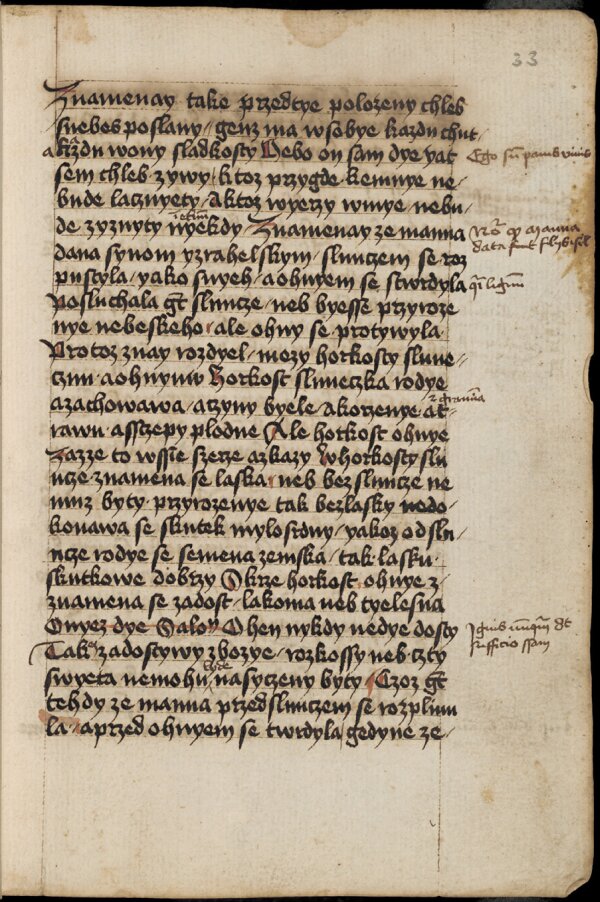 33
Znamenay take przedtye polozeny chleb
snebes poslany / genz ma wsobye kazdu chut /
a kazdu wony sladkosty Nebo on sam dye yat
Ego sum panis vivus
sem chleb zywy / ktoz przygde kemnye ne /
bude lacznyety / Aktoz wyerzy wmye nebu /
de zyznyty wyekdy / Znamenay ze manna
dana synom yzrahelskym / sluncem se roz
pustyla / yako snyeh / aohnyem se stwrdyla
Posluchala gt slunce / neb byesse przyroze
nye nebeskeho / ale ohny se protywyla
Protoz znay rozdyel / mezy horkosty slune /
cznu aohnynu Horkost slunecznka rodye
azachowawa / aczyny byele / Akorzenye at /
rawu asstzepy plodne Ale horkost ohnye
Zazze to wsse szerze azkazy Whorkosty slu
ncze znamena se laska / neb bez slunce ne
muz byty przyrozenye tak bezlasky nedo /
konawa se skutek mylosrdny / yakoz od slu /
ncze rodye se semena zemska / tak lasku
skutkowe dobrzy Skrze horkost ohnye z /
znamena se zadost lakoma neb tyelesna
Onyez dye Salon Ohen nykdy nedye dosty
Take zadostywy zbozye / rozkossy neb czty
swyeta nemohu nasyczeny byty / Czoz gt
tehdy ze manna przed sluncem se rozplinu
la / aprzed ohnyem se twrdyla gedyne ze /